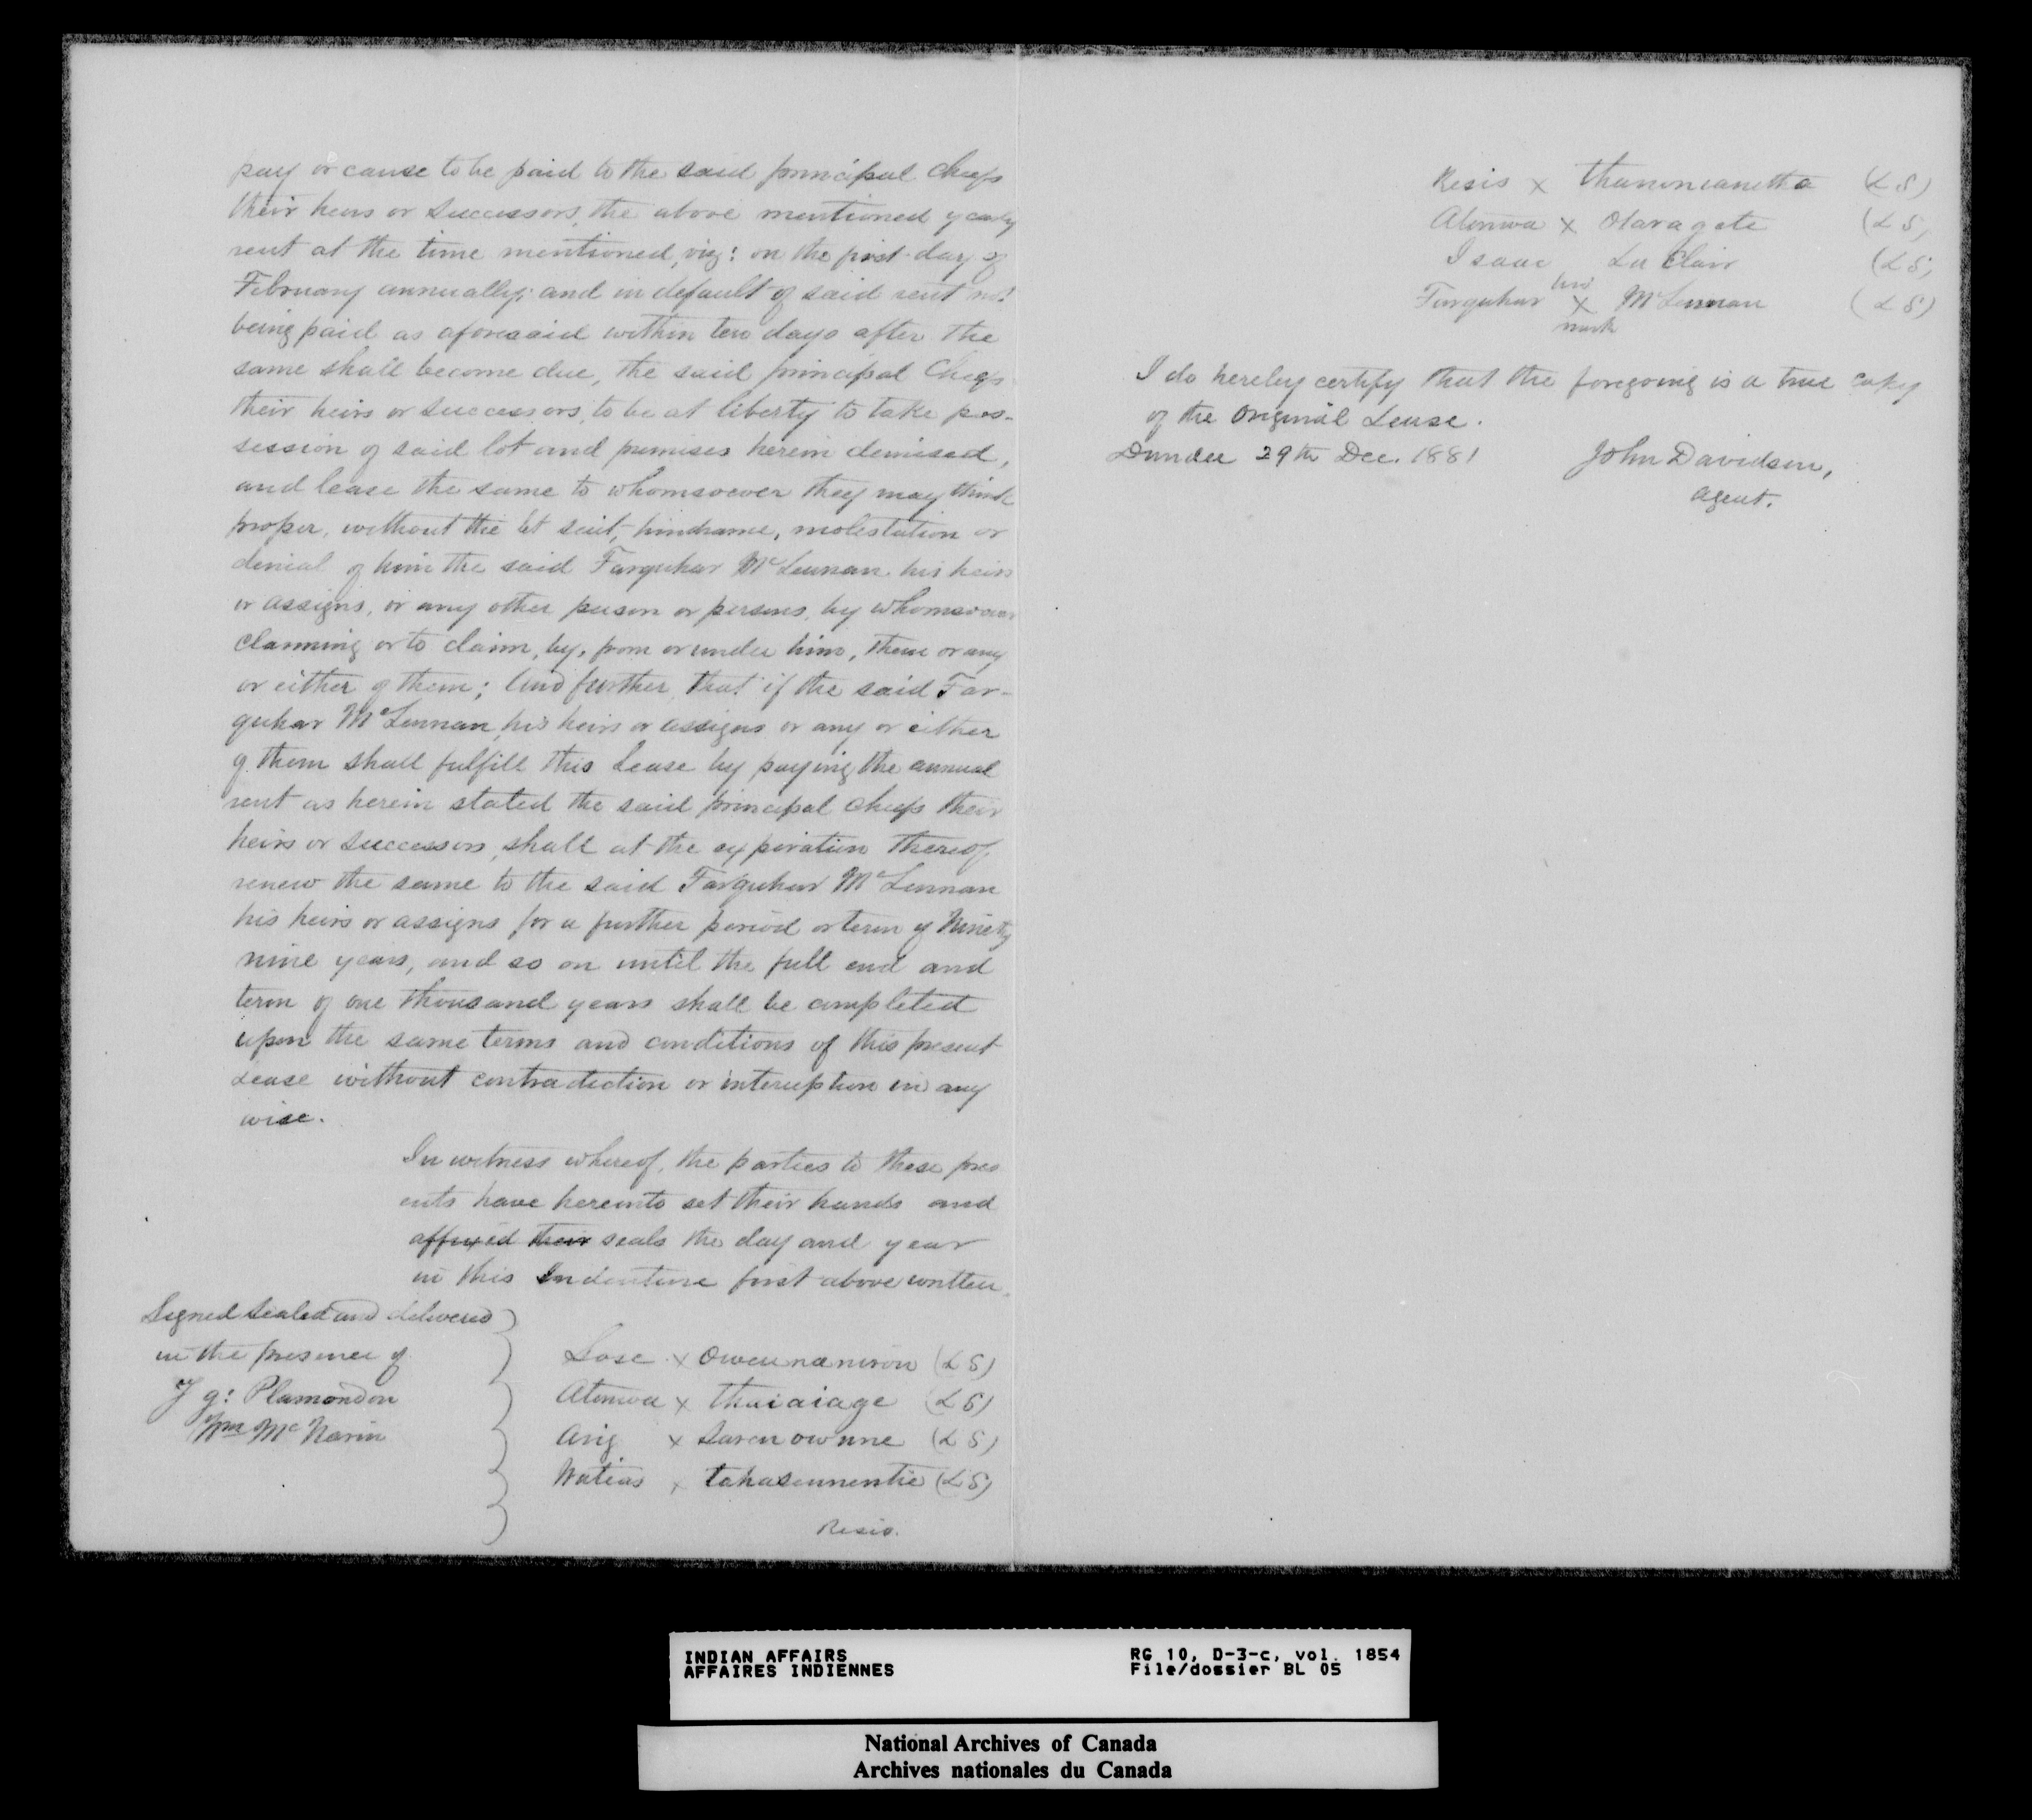 pay or cause to be paid to the said principal Chiefs
their heirs or successors, the above mentioned yearly
rent at the time mentioned, viz: on the first day of
February annually; and in default of said rent not
being paid as aforesaid within ten days after the
same shall become due, the said principal Chiefs
their heirs or successors, to be at liberty to take pos-
session of said lot and premises herein demised,
and lease the same to whomsoever they may think
proper, without the let suit, hindrance, molestation or
denial of him the said Farquhar McLennan his heirs
or assigns, or any other person or persons, by whomsoever
claiming or to claim, by, from or under him, them or any
or either of them; And further, that if the said Far-
quhar McLennan, his heirs or assigns or any or either
of them shall fulfill this Lease by paying the annual
rent as herein stated the said principal chiefs their
heirs or successors, shall at the expiration thereof,
renew the same to the said Farquhar McLennan
his heirs or assigns for a further period or term of Ninety
nine years, and so on until the full end and
term of one thousand years shall be completed
upon the same terms and conditions of this present
Lease without contradiction or interuption in any
wise.
In witness whereof, the parties to these pres
ents have hereinto set their hands and
affixed their seals the day and year
in this Indenture first above written.
Signed Sealed and delivered
in the presence of
J g: Plamondon
Wm McNarin
Sose x Owennaniron (L S)
Atonwa x Thaiaiage (L S)
Arig x Sarenowane (L S)
Watias x takasennentie (L S)
Resis.
Resis x Thanoneanetha (L S)
Atonwa x Otaragete (L S)
Isaac Le Clair (L S)
his
Farquhar x McLennan (L S)
mark
I do hereby certify that the foregoing is a true copy
of the Original Lease.
Dundee 29th Dec. 1881 John Davidson,
Agent.
INDIAN AFFAIRS RG 10, D-3-c, vol. 1854
AFFAIRES INDIENNES File/dossier BL 05
National Archives of Canada
Archives nationales du Canada